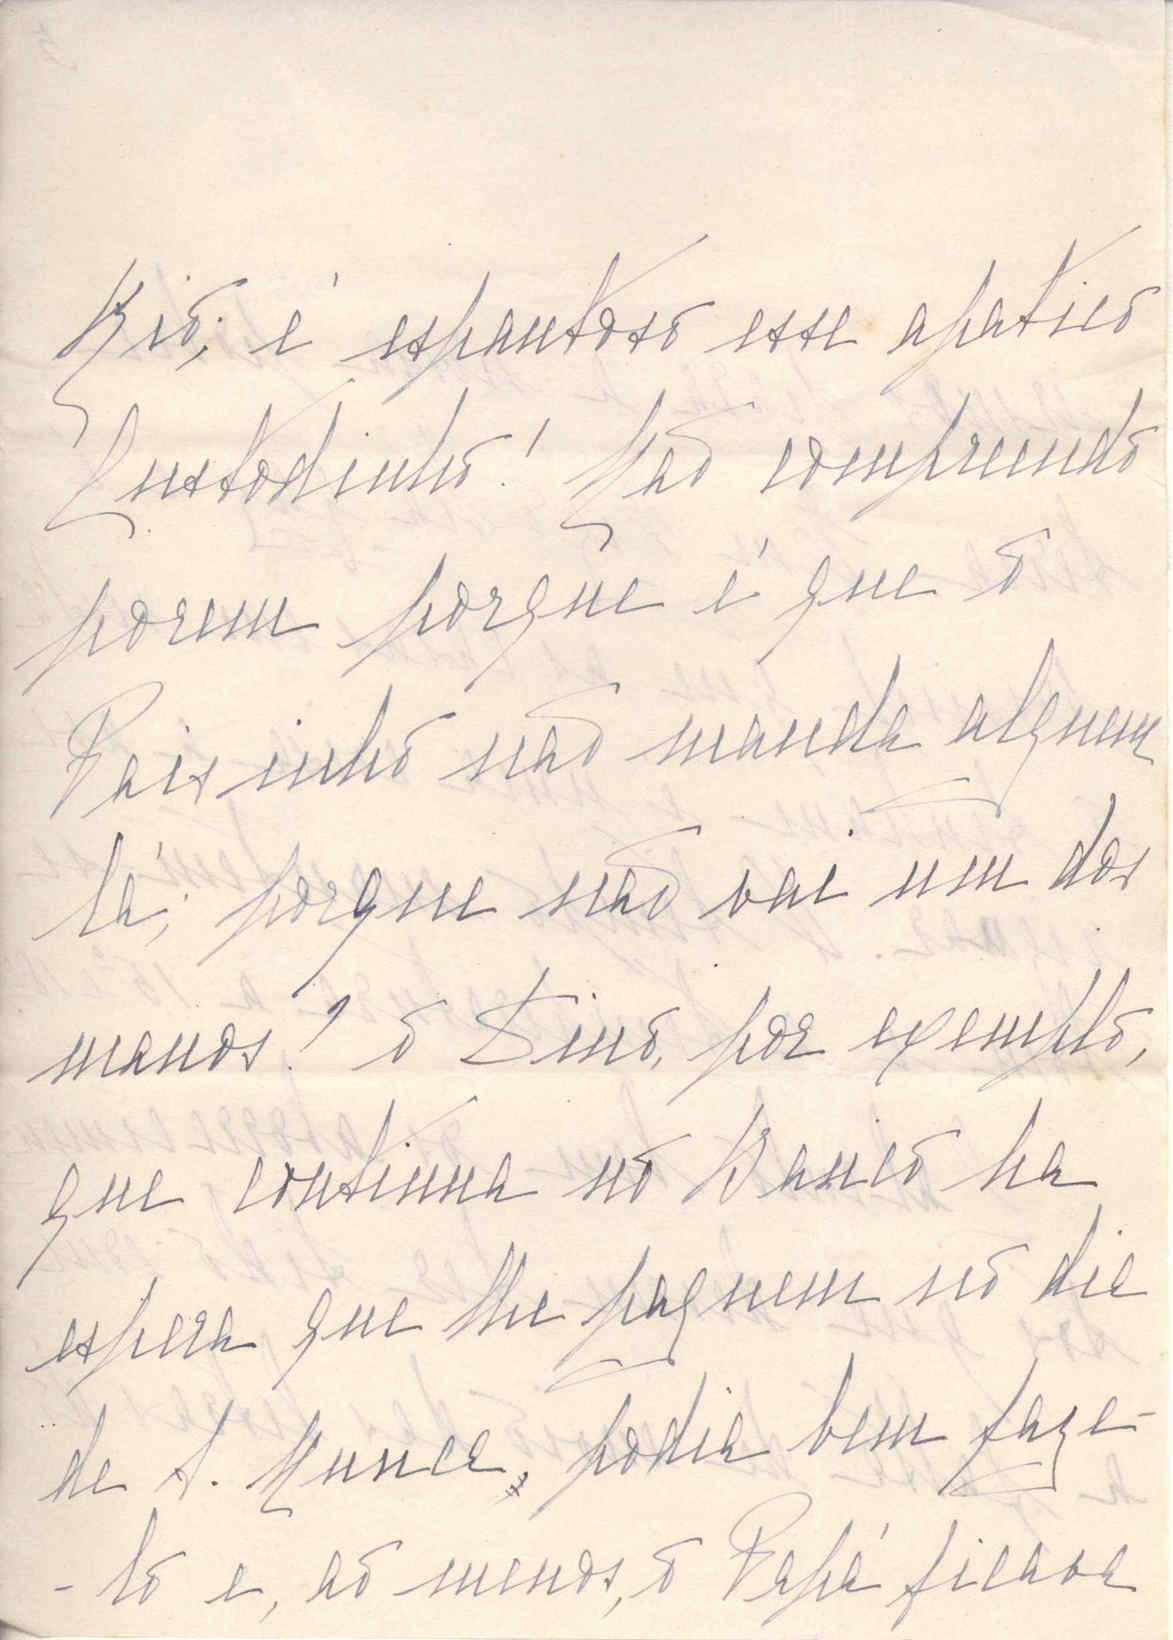 Rio; é espantoso esse apatico
Custodinho! Não comprendo
porem porque é que o
Paisinho não manda alguem
lá; porque não vai um dos
manos? o Dino, por exemplo,
que continua no Banco ha
espera que lhe paguem no dia
de S. Nunca, podia bem faze-
-lo e, ao menos, o Papá ficava